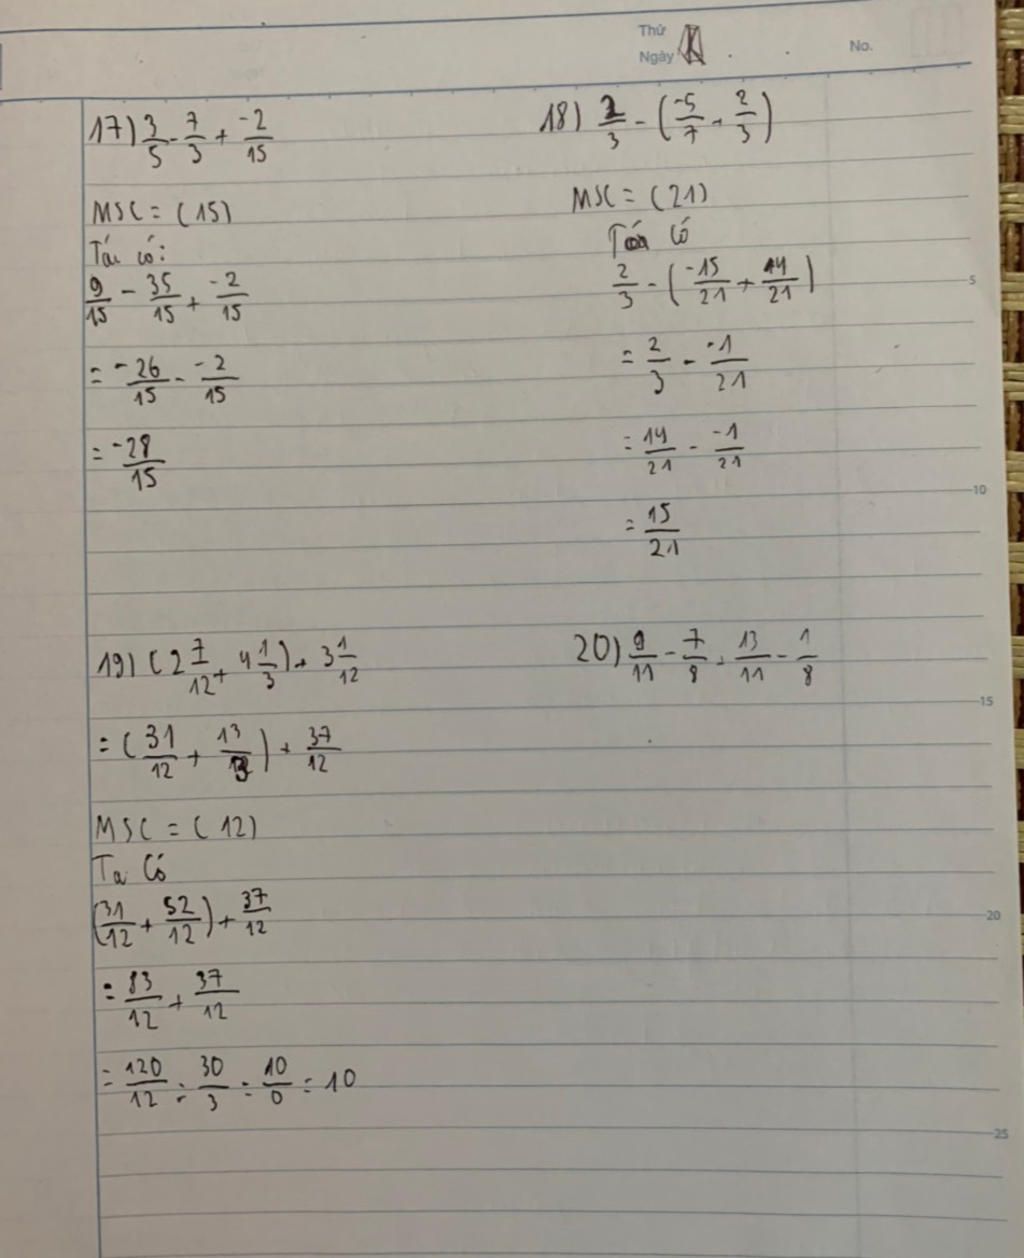 Thứ
Ngày
No.
17) 3/5 - 7/3 + -2/15
MSC = (15)
Ta có:
9/15 - 35/15 + -2/15
= -26/15 - -2/15
= -28/15
18) 2/3 - (-5/7 + 2/3)
MSC = (21)
Ta có
2/3 - (-15/21 + 14/21)
= 2/3 - -1/21
= 14/21 - -1/21
= 15/21
19) (2 7/12 + 4 1/3) + 3 1/12
= (31/12 + 13/3) + 37/12
MSC = (12)
Ta có
(31/12 + 52/12) + 37/12
= 83/12 + 37/12
= 120/12 = 30/3 = 10/0 = 10
20) 9/11 - 7/8 + 13/11 - 1/8
5
10
15
20
25